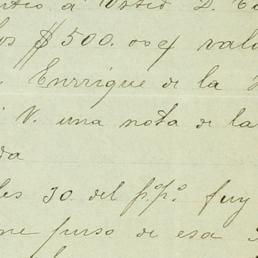 a Usted D.
$500.00 valo
Enrrique de la
V. una nota de la
da
les 30 del p.º p.º fuy
me puso de esa